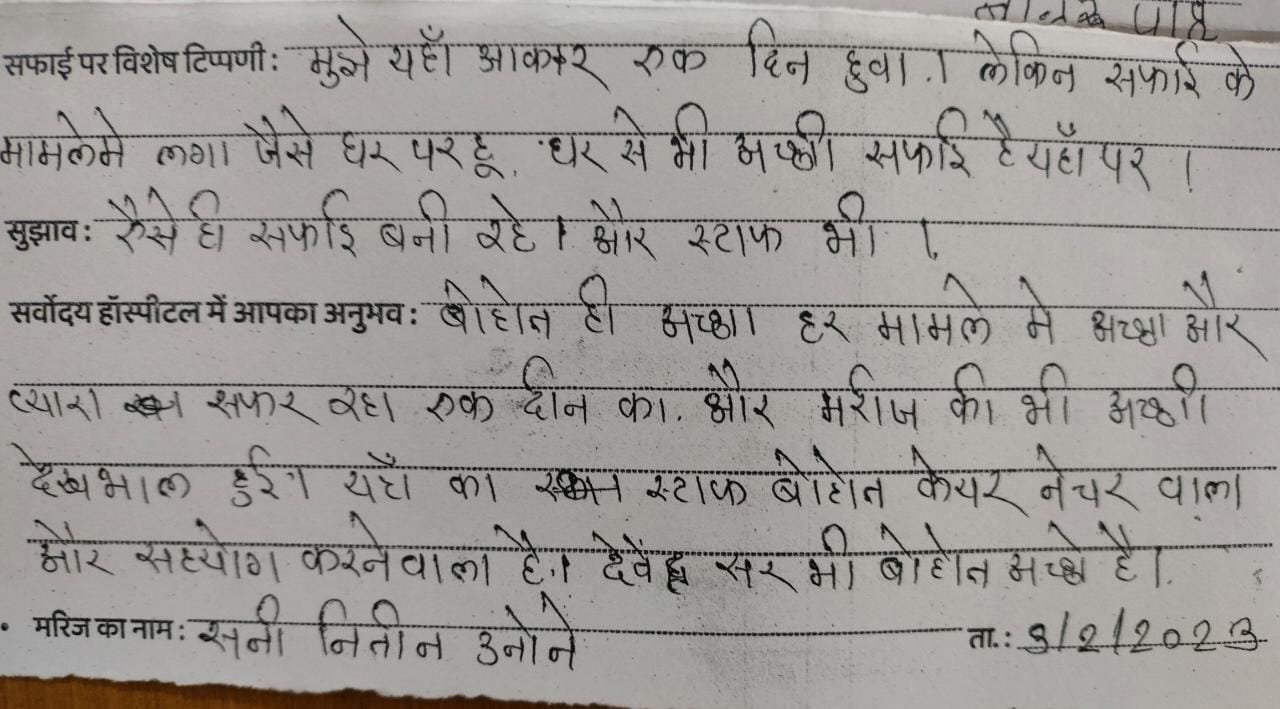 सफाई पर विशेष टिप्पणी: मुझे यहाँ आकर एक दिन हुवा.। लेकिन सफाई के
मामलेमे लगा जैसे घर पर हू. घर से भी अच्छी सफाई है यहाँ पर ।
सुझाव: ऐसे ही सफाई बनी रहे । और स्टाफ भी ।.
सर्वोदय हॉस्पीटल में आपका अनुभव: बोहोत ही अच्छा। हर मामले मे अच्छा और
प्यारा सफर रहा एक दीन का. और मरीज की भी अच्छी
देखभाल हुई। यहाँ का स्टाफ बोहोत केयर नेचर वाला
और सहयोग करनेवाला है.। सर भी बोहोत अच्छे है।.
• मरिज का नाम: सनी नितीन
ता.: 3/2/2023